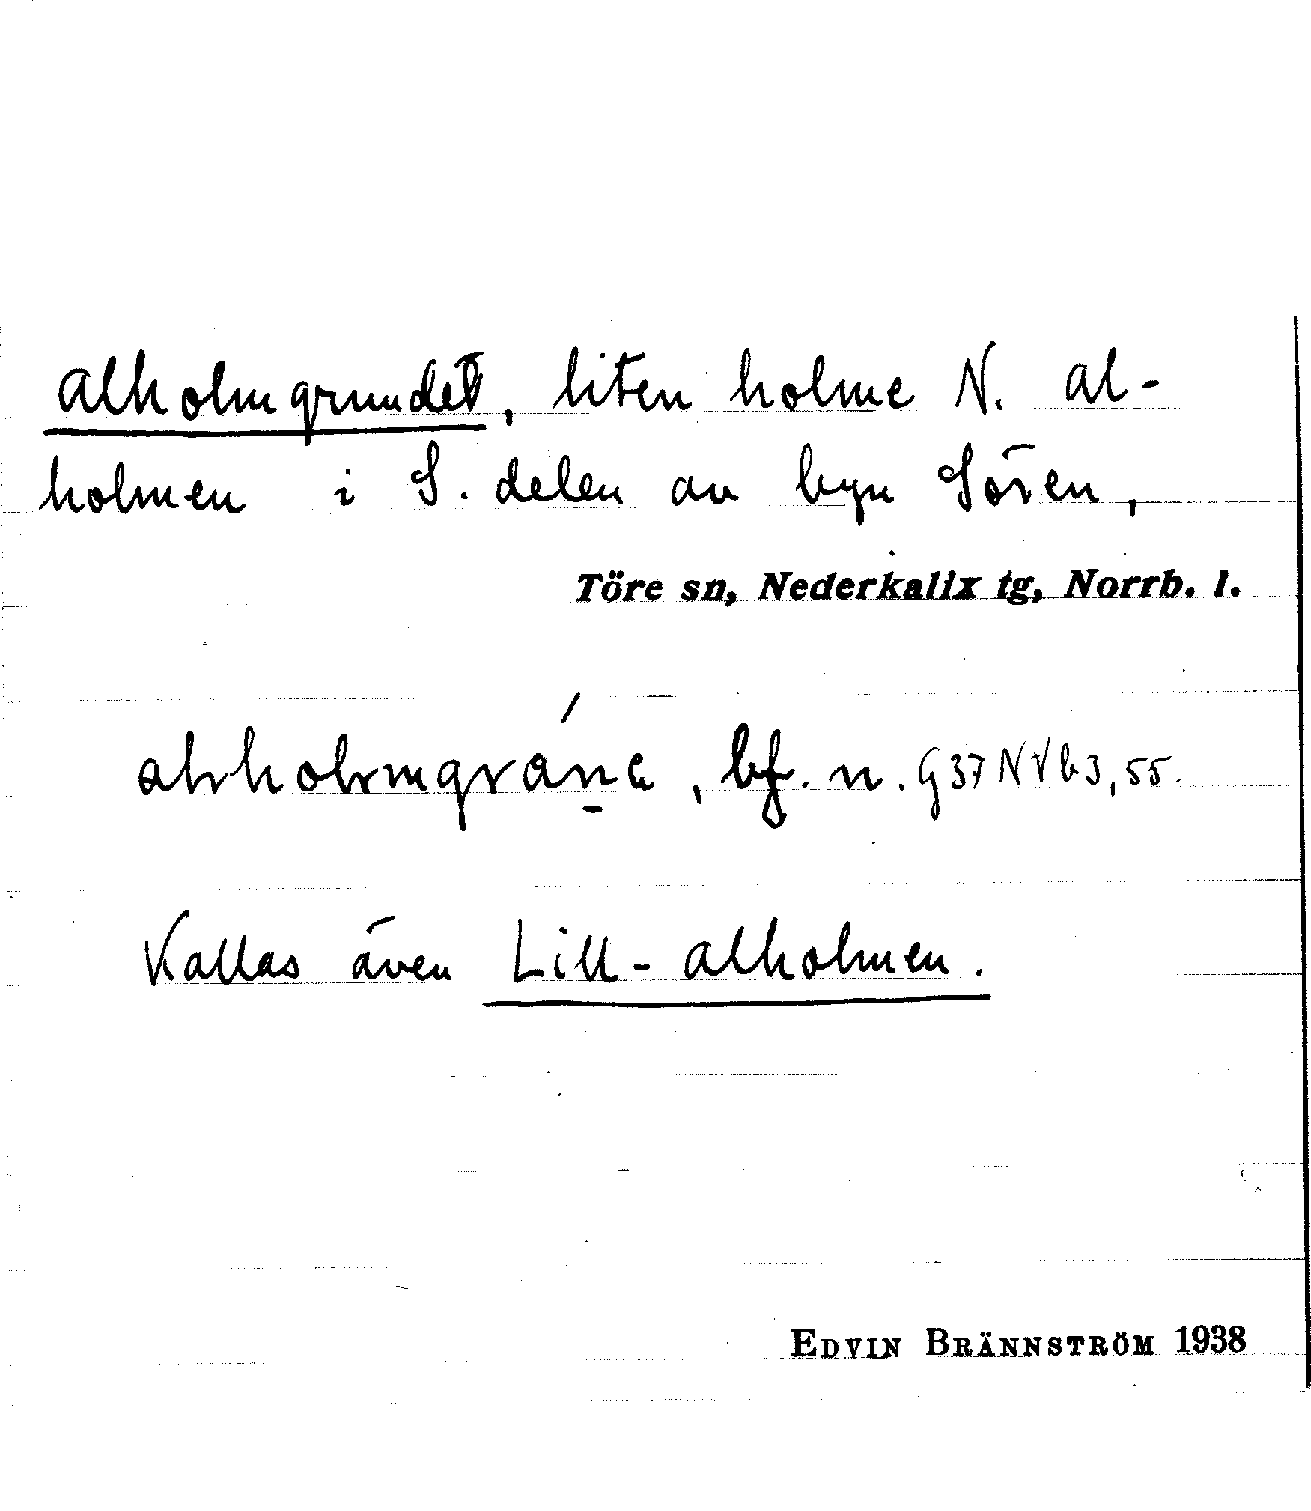 Alholmgrundet, liten holme N. Al-
holmen i S. delen av byn Sören,
Töre sn, Nederkalix tg, Norrb. l.
bf. n. G37NVb3,55.
Kallas även Lill-Alholmen.
EDVIN BRÄNNSTRÖM 1938